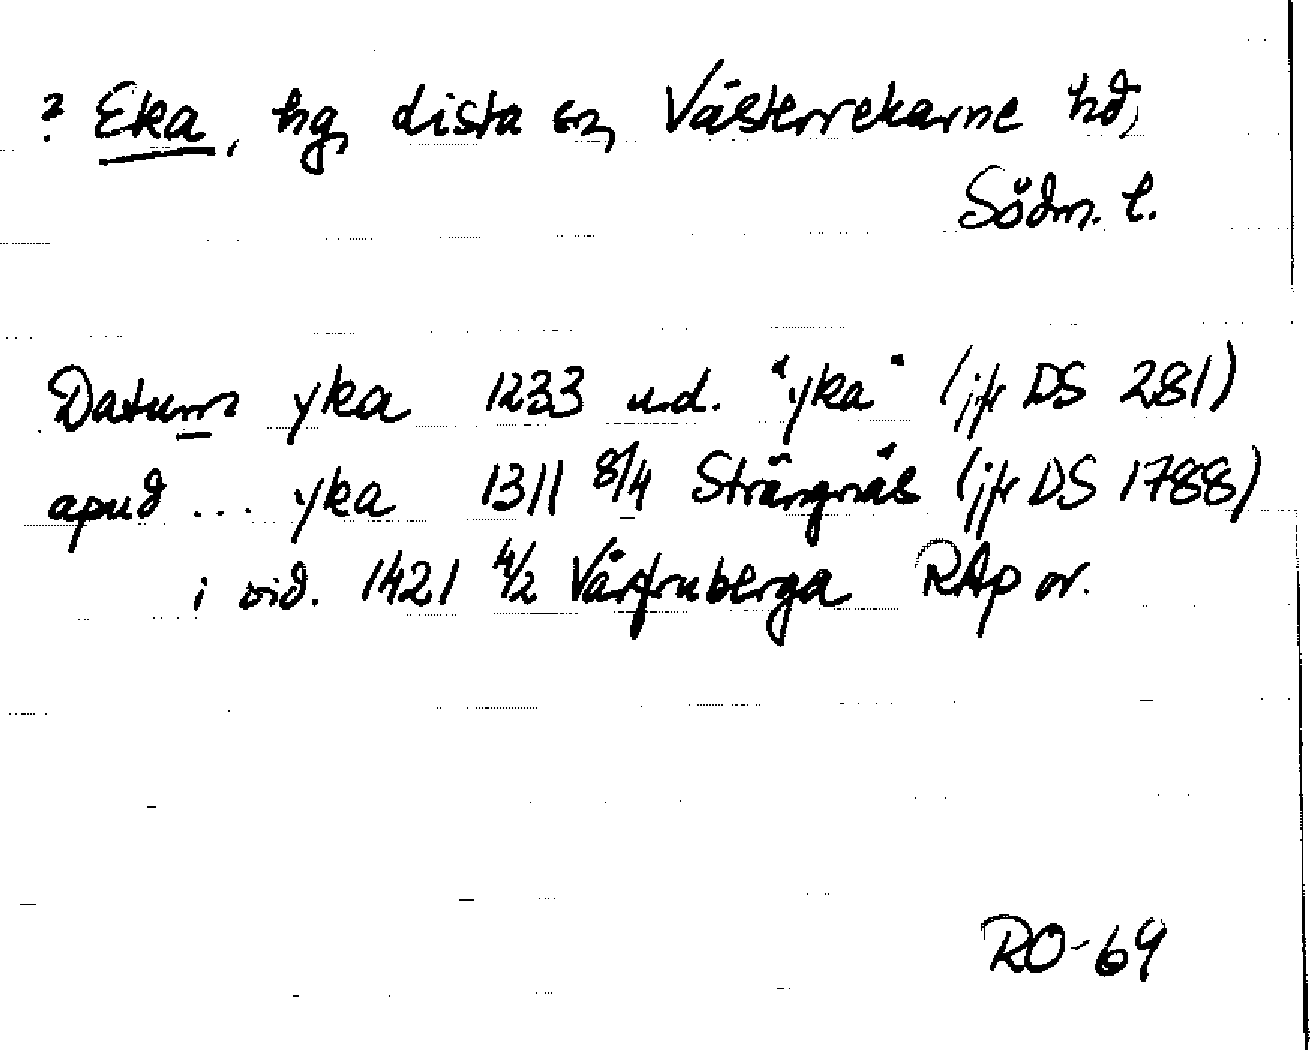 ? Eka, hg, Lista sn, Västerrekarne hd,
Södm. l.
Datum yka 1233 u.d. "yka" (jfr DS 281)
apud ... yka 1311 8/4 Strängnäs (jfr DS 1788)
i vid. 1421 4/2 Vårfruberga RAp or.
RO-69